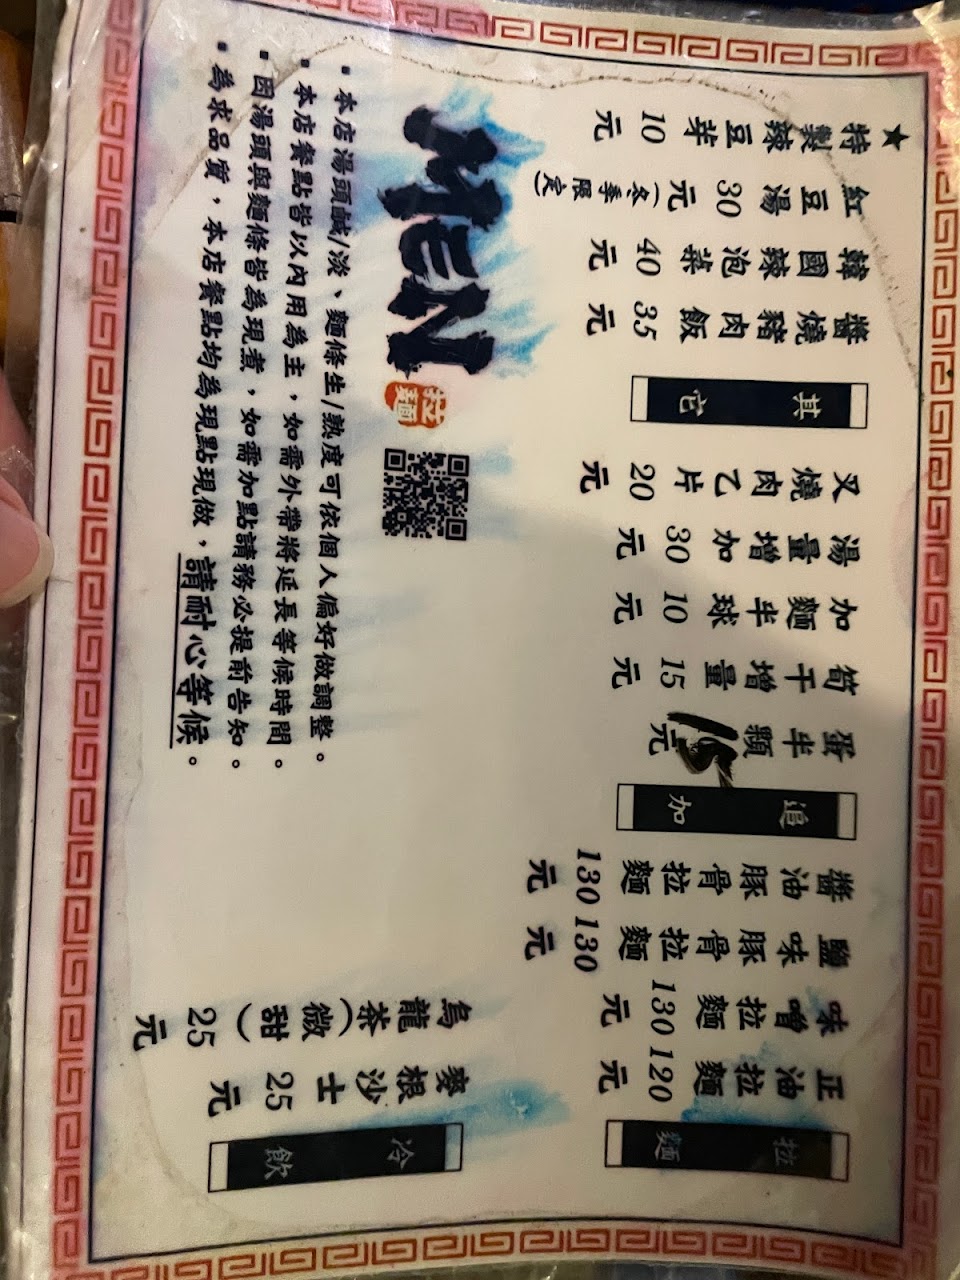 拉麵
正油拉麵120元
味噌拉麵130元
鹽味豚骨拉麵130元
醬油豚骨拉麵130元
追加
蛋半顆15元
筍干增量15元
加麵半球10元
湯量增加30元
叉燒肉乙片20元
其它
醬燒豬肉飯35元
韓國辣泡菜40元
紅豆湯30元(冬季限定)
★特製辣豆芽10元
冷飲
麥根沙士25元
烏龍茶(微甜)25元
MEN
拉麵
▪本店湯頭鹹/淡、麵條生/熟度可依個人偏好做調整。
▪本店餐點皆以內用為主，如需外帶將延長等候時間。
▪因湯頭與麵條皆為現煮，如需加點請務必提前告知。
▪為求品質，本店餐點均為現點現做，請耐心等候。